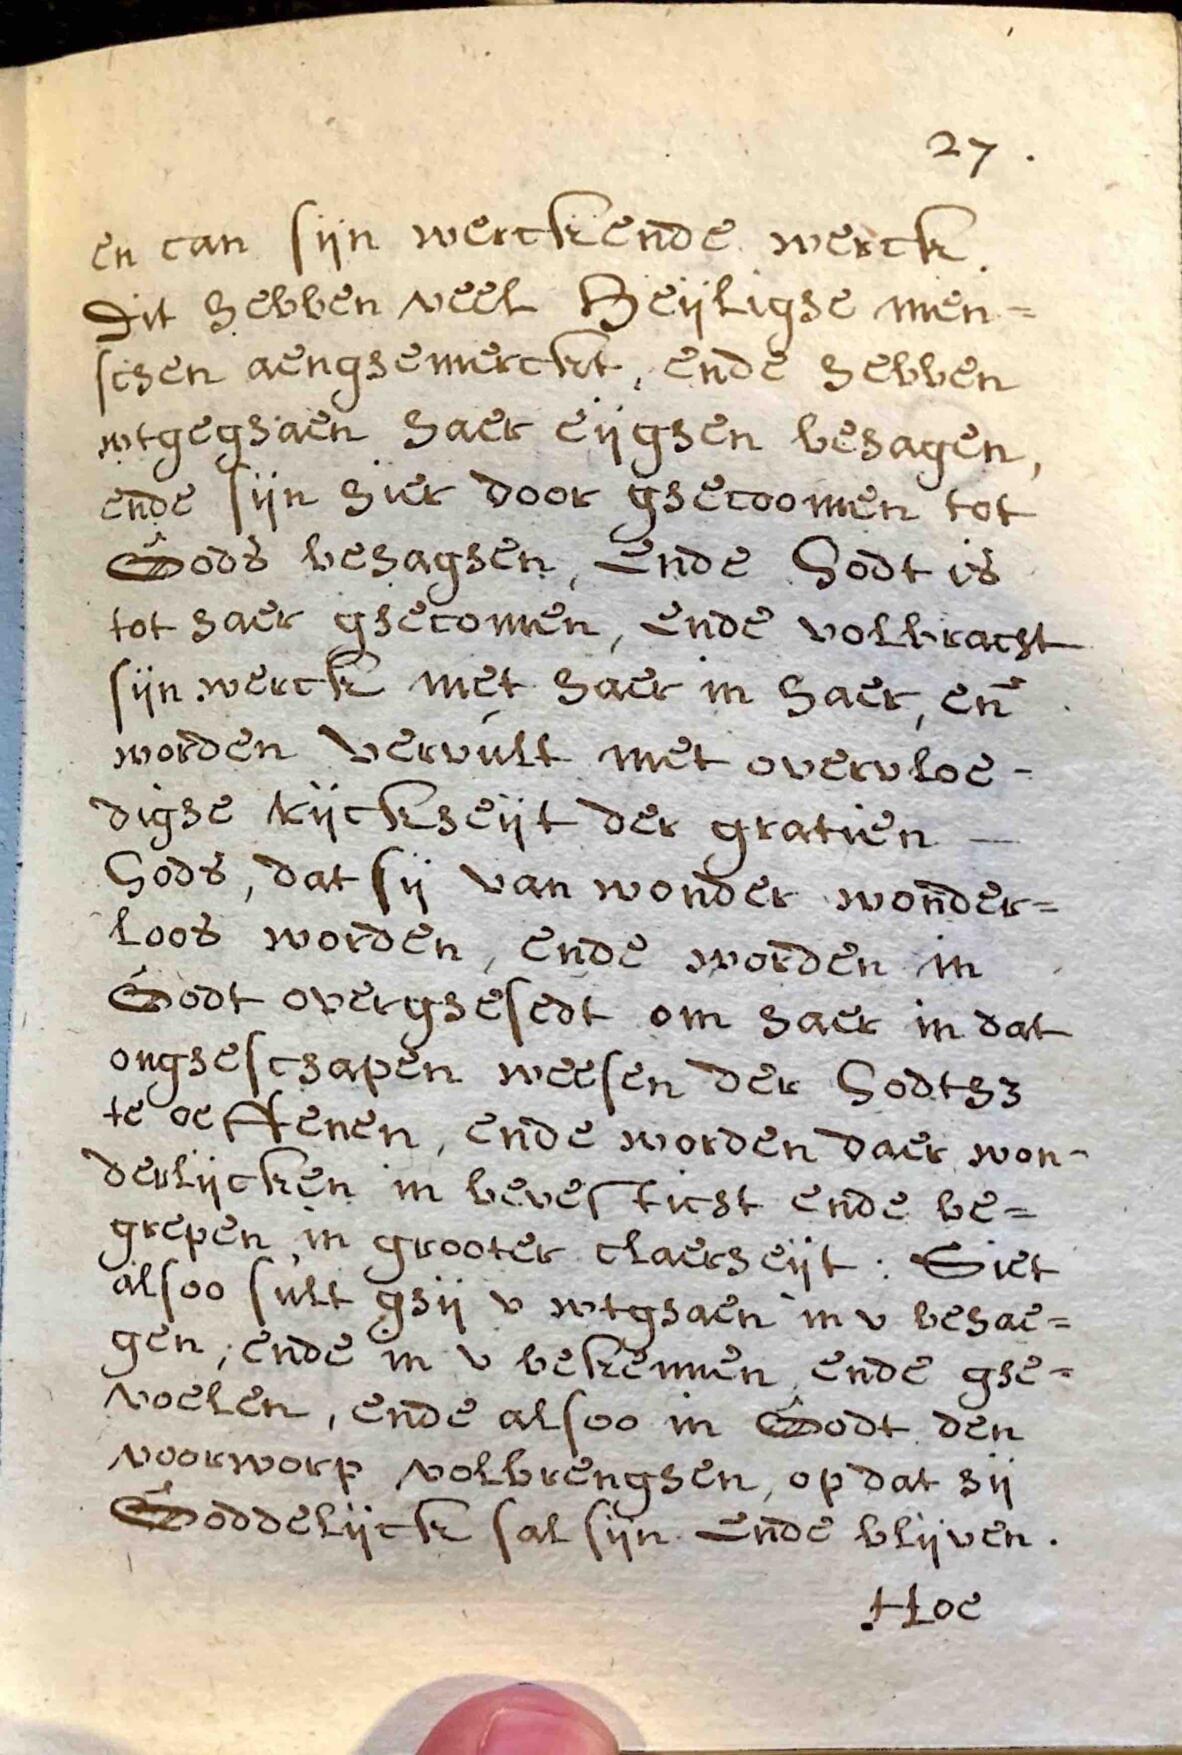 27.
en can sijn werckende werck.
Dit hebben veel Heijlighe men=
schen aenghemerckt, ende hebben
wtgeghaen haer eijghen behagen,
ende sijn hier door ghecoomen tot
Gods behaghen, Ende Godt is
tot haer ghecomen, Ende volbracht
sijn werck met haer in haer, en̄
worden vervult met overvloe-
dighe rijckheijt der gratien —
Gods, dat sij van wonder wonder=
loos worden, ende worden in
Godt overghesedt om haer in dat
ongheschapen weesen der Godthz
te oeffenen, ende worden daer won-
derlijcken in bevesticht ende be=
grepen in grooter claerheijt: Siet
alsoo sult ghij v wtghaen in v behae=
gen, ende in v bekennen ende ghe=
voelen, ende alsoo in Godt den
voorworp volbrenghen, op dat hij
Goddelijck sal sijn Ende blijven.
Hoe